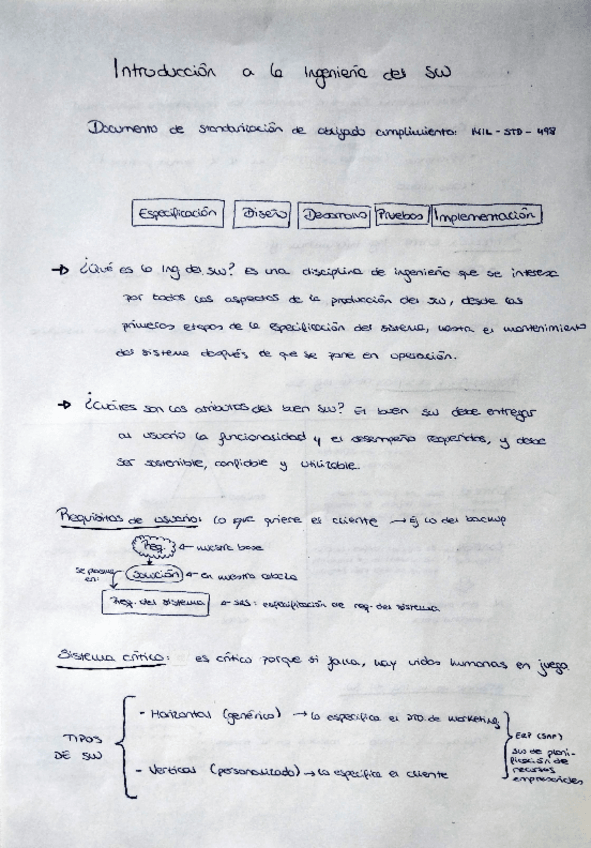 Introducción a la Ingeniería del SW
Documento de standarización de obligado cumplimiento: MIL-STD-498
Especificación Diseño Desarrollo Pruebas Implementación
→ ¿Qué es la Ing del SW? Es una disciplina de ingeniería que se interesa
por todos los aspectos de la producción del SW, desde las
primeras etapas de la especificación del sistema, hasta el mantenimiento
del sistema después de que se pone en operación.
→ ¿Cuáles son los atributos del buen SW? El buen SW debe entregar
al usuario la funcionalidad y el desempeño requeridos, y debe
ser sostenible, confiable y utilizable.
Requisitos de usuario: lo que quiere el cliente → Ej lo del backup
Req. ← nuestra base
se plasma
en:
Solución ← en nuestra
Req. del sistema ← SRS: especificación de req. del sistema
Sistema crítico: es crítico porque si falla, hay vidas humanas en juego
TIPOS
DE SW
- Horizontal (genérico) → lo especifica el DTO. de marketing
- Vertical (personalizado) → lo especifica el cliente
ERP (SAP)
SW de plani-
ficación de
recursos
empresariales